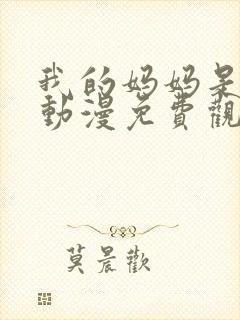 我的妈妈是
動漫免費觀
莫晨歡